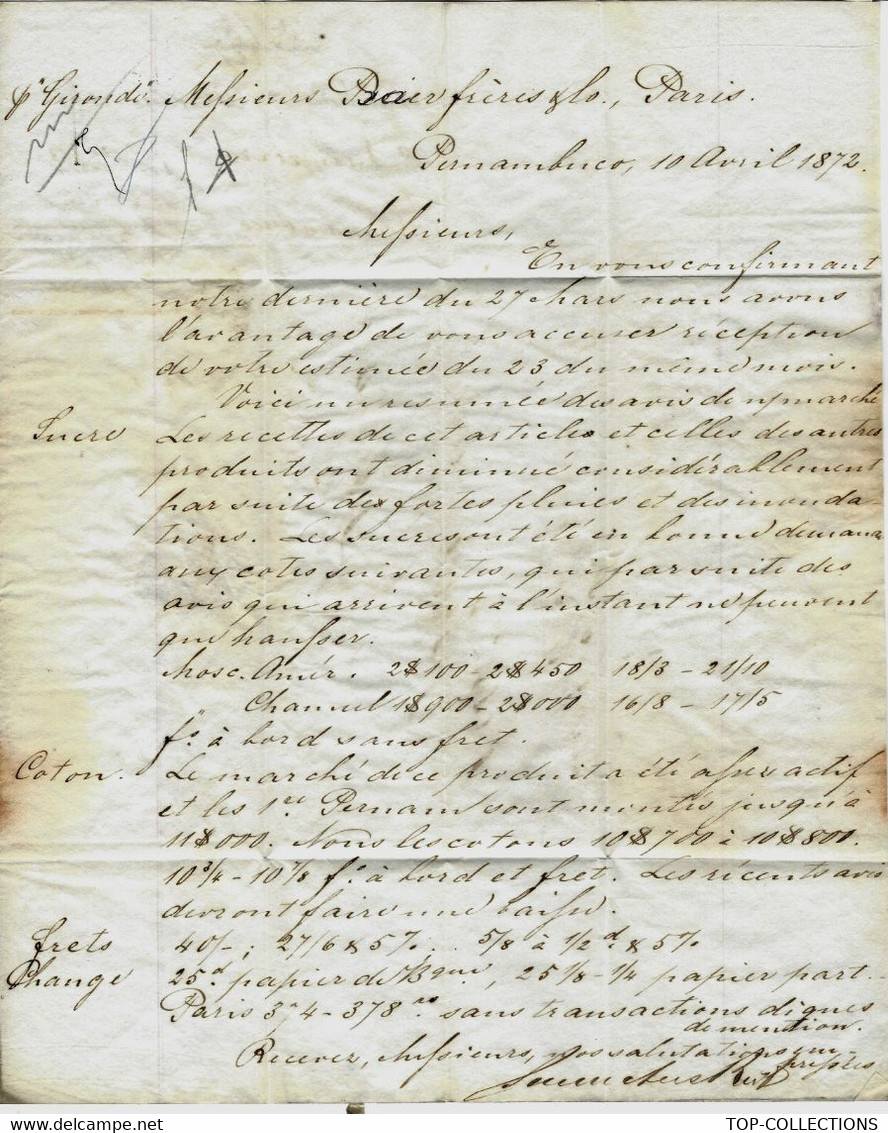 p "Gironde". Messieurs Baier frères & Co., Paris.
Pernambuco, 10 Avril 1872.
Messieurs,
En vous confirmant
notre dernière du 27 Mars nous avons
l'avantage de vous accuser réception
de votre estimée du 23 du même mois.
Voici un resumée des avis de n/marché
Sucre Les recettes de cet article et celles des autres
produits ont diminué considérablement
par suite des fortes pluies et des inonda
tions. Les sucres ont été en bonne demande
aux cotes suivantes, qui par suite des
avis qui arrivent à l'instant ne peuvent
que hausser.
Mosc. Amér. 2$100 - 2$450 18/3 - 21/10
" Channel 1$900 - 2$000 16/8 - 17/5
fo. à bord sans fret.
Coton. Le marché de ce produit a été assez actif
et les 1res Pernam sont montés jusqu'à
11$000. Nous les cotons 10$700 à 10$800.
10 3/4 - 10 7/8 fo. à bord et fret. Les récents avis
devront faire une baisse.
frets 40/-; 27/6 & 5%; .. 5/8 à 1/2 d & 5%
Change 25 d papier de Bque, 25 1/8 - 1/4 papier part.
Paris 374 - 378 rs sans transactions dignes
de mention.
Recevez, Messieurs, nos salutations em-
pressées
TOP-COLLECTIONS